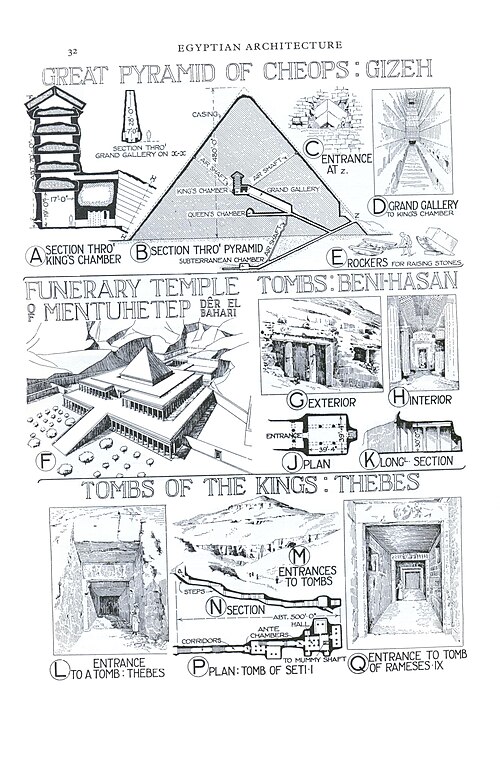 32
EGYPTIAN ARCHITECTURE
GREAT PYRAMID OF CHEOPS : GIZEH
CASING
28'0"
SECTION THRO'
GRAND GALLERY ON X-X
AIR SHAFT
AIR SHAFT
KING'S CHAMBER
GRAND GALLERY
QUEEN'S CHAMBER
AIR SHAFT
SUBTERRANEAN CHAMBER
19'0"
17'-0"
X
X
Z
A SECTION THRO' KING'S CHAMBER
B SECTION THRO' PYRAMID
C ENTRANCE AT Z.
D GRAND GALLERY TO KING'S CHAMBER
E ROCKERS FOR RAISING STONES
FUNERARY TEMPLE
OF MENTUHETEP DÊR EL BAHARI
F
TOMBS : BENI-HASAN
G EXTERIOR
H INTERIOR
ENTRANCE
39'-4"
J PLAN
K LONGL SECTION
TOMBS OF THE KINGS : THEBES
L ENTRANCE TO A TOMB : THEBES
M ENTRANCES TO TOMBS
STEPS
N SECTION
ABT. 500'0"
HALL
ANTE CHAMBERS
CORRIDORS
TO MUMMY SHAFT
P PLAN : TOMB OF SETI·I
Q ENTRANCE TO TOMB OF RAMESES·IX